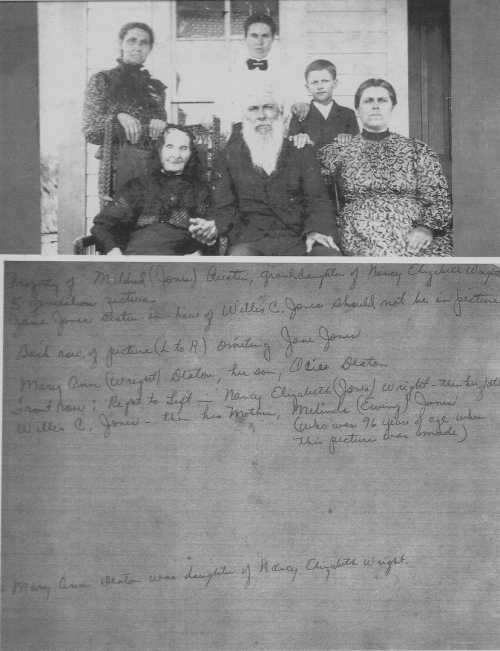 Property of Mildred (Jones) Austin, granddaughter of Nancy Elizabeth Wright
5 generation picture
Jane Jones in back of Willis C. Jones should not be in picture
Back row of picture (L to R) omiting Jane Jones
Mary Ann (Wright) Deaton, her son, Deaton
Front row: Right to Left — Nancy Elizabeth (Jones) Wright — then her father
Willis C. Jones — then his Mother, Melinda (Ewing) Jones
(who was 96 years of age when
this picture was made)
Mary Ann Deaton was daughter of Nancy Elizabeth Wright.